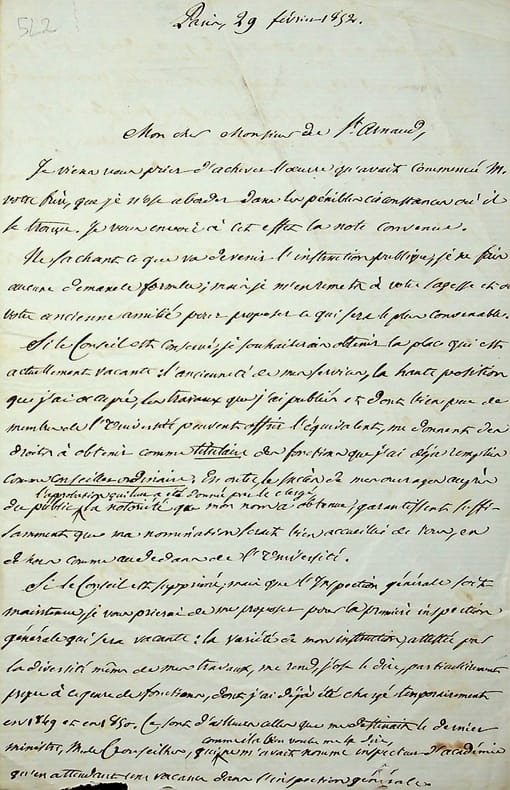 522
Paris, 29 février 1852.
Mon cher Monsieur de St Arnaud,
Je viens vous prier d'achever l'œuvre qu'avait commencé M.
votre frère, que je n'ose aborder dans les pénibles circonstances où il
se trouve. Je vous envoie à cet effet la note convenue.
Ne sachant ce que va devenir l'instruction publique, je ne fais
aucune demande formelle; mais je m'en remets à votre sagesse et à
votre ancienne amitié pour proposer ce qui sera le plus convenable.
Si le Conseil est conservé, je souhaiterais obtenir la place qui est
actuellement vacante: l'ancienneté de mes services, la haute position
que j'ai occupé, les travaux que j'ai publiés et dont bien peu de
membres de l'Université peuvent offrir l'équivalent, me donnent des
droits à obtenir comme titulaire des fonctions que j'ai déjà remplies
comme Conseiller ordinaire. En outre le succès de mes ouvrages auprès
l'approbation qui leur a été donné par le clergé
du public, la notoriété que mon nom a obtenue, garantissent suffi-
samment que ma nomination serait bien accueillie de tous, en
dehors comme au dedans de l'Université.
Si le Conseil est supprimé, mais que l'Inspection générale soit
maintenue, je vous prierai de me proposer pour la première inspection
générale qui sera vacante: la variété de mon instruction, attestée par
la diversité même de mes travaux, me rend, j'ose le dire, particulièrement
propre à ce genre de fonctions, dont j'ai déjà été chargé temporairement
en 1849 et en 1850. Ce sont d'ailleurs celles que me destinait le dernier
comme il a bien voulu me le dire,
ministre, M. de Crouseilhes, qui ne m'avait nommé inspecteur d'académie
qu'en attendant une vacance dans l'inspection générale.